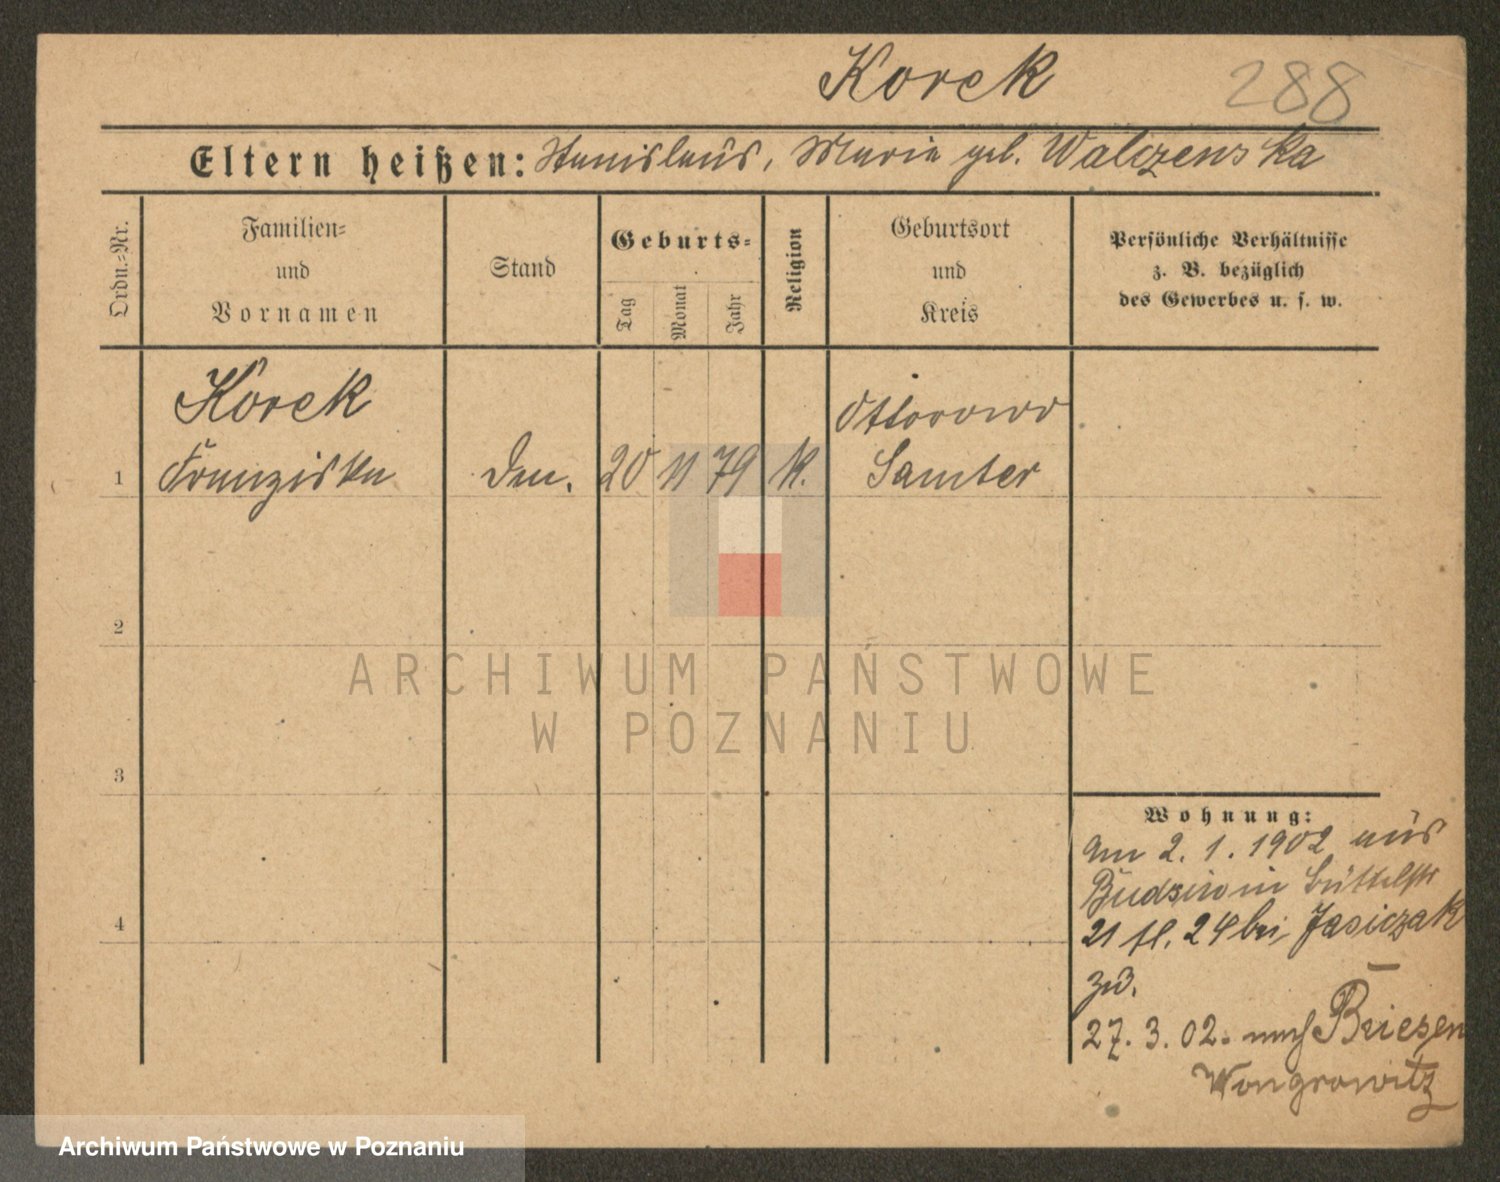 Korek
288
Eltern heißen: Stanislaus, Maria geb. Walczenska
Ordn.-Nr.
Familien-
und
Vornamen
Stand
Geburts-
Tag
Monat
Jahr
Religion
Geburtsort
und
Kreis
Persönliche Verhältnisse
z. B. bezüglich
des Gewerbes u. s. w.
Korek
Ottorowo
1 Franziska 20 11 79 K. Samter
2
3
4
Wohnung:
Am 2. 1. 1902 aus
Budsin in Büttelstr
21 fl. 24 bei Jasiczak
zu.
27. 3. 02. nach Briesen
Wongrowitz
ARCHIWUM PAŃSTWOWE
W POZNANIU
Archiwum Państwowe w Poznaniu